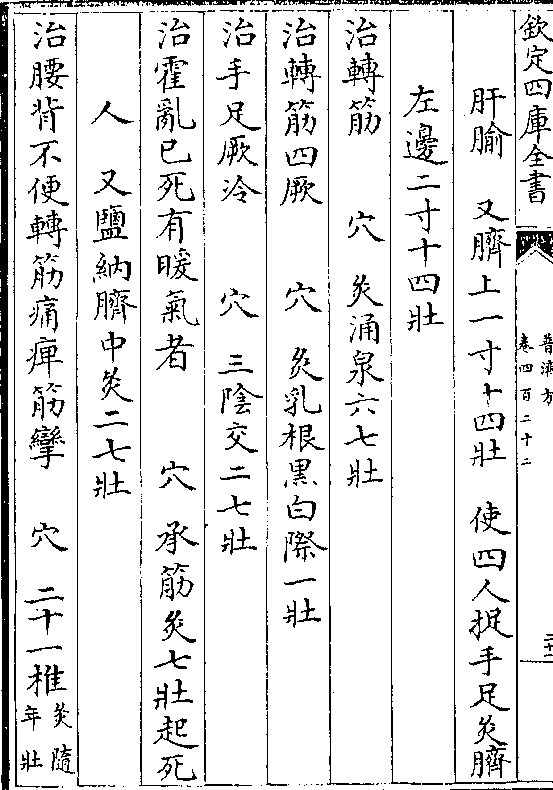 欽定四庫全書
普濟方
卷四百二十二
二十二
肝腧 又臍上一寸十四壯 使四人捉手足灸臍
左邊二寸十四壯
治轉筋 穴 灸涌泉六七壯
治轉筋四厥 穴 灸乳根黑白際一壯
治手足厥冷 穴 三陰交二七壯
治霍亂已死有暖氣者 穴 承筋灸七壯起死
人 又鹽納臍中灸二七壯
治腰背不便轉筋痛痺筋攣 穴 二十一椎灸隨年壯